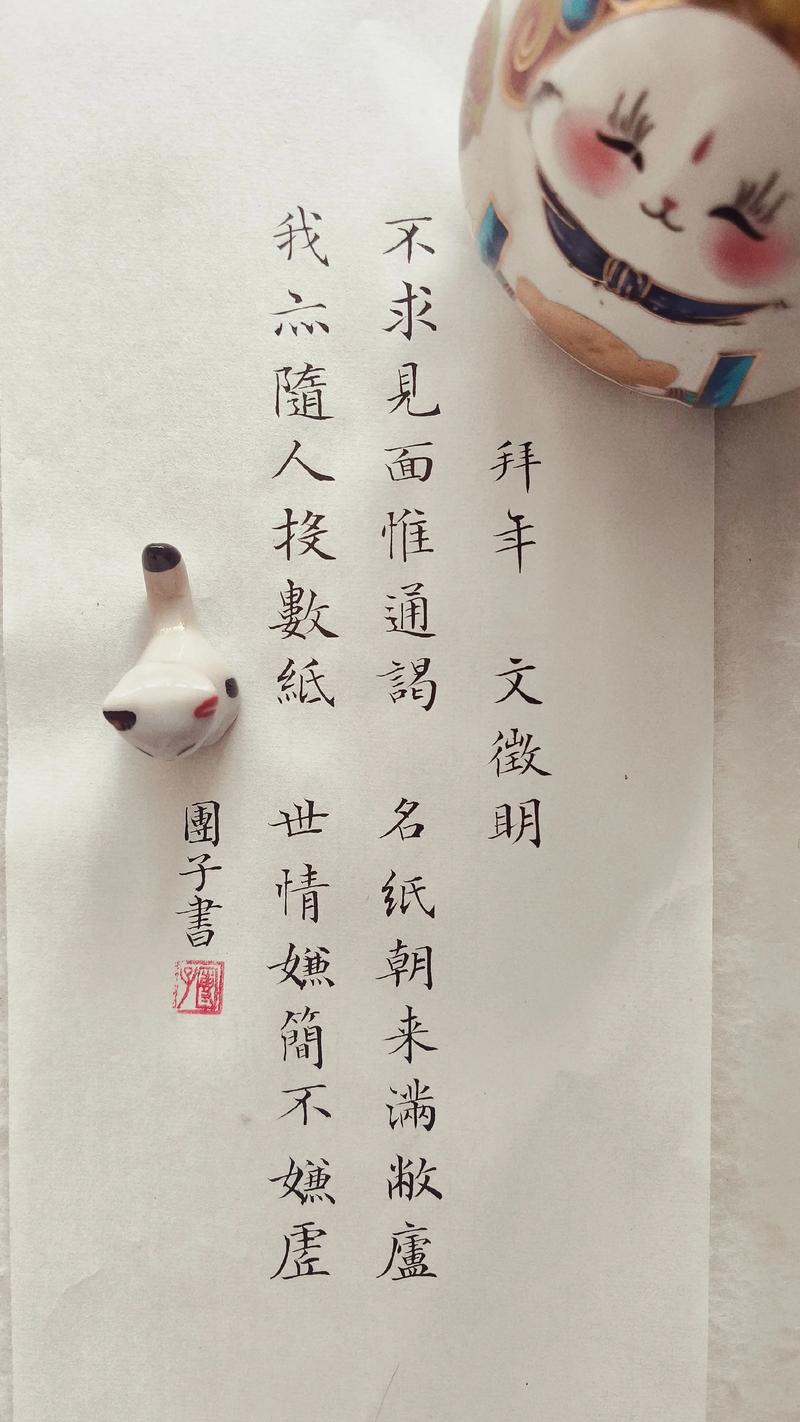 拜年 文徵明
不求見面惟通謁 名紙朝来滿敝廬
我亦隨人投數紙 世情嫌簡不嫌虛
團子書
團子